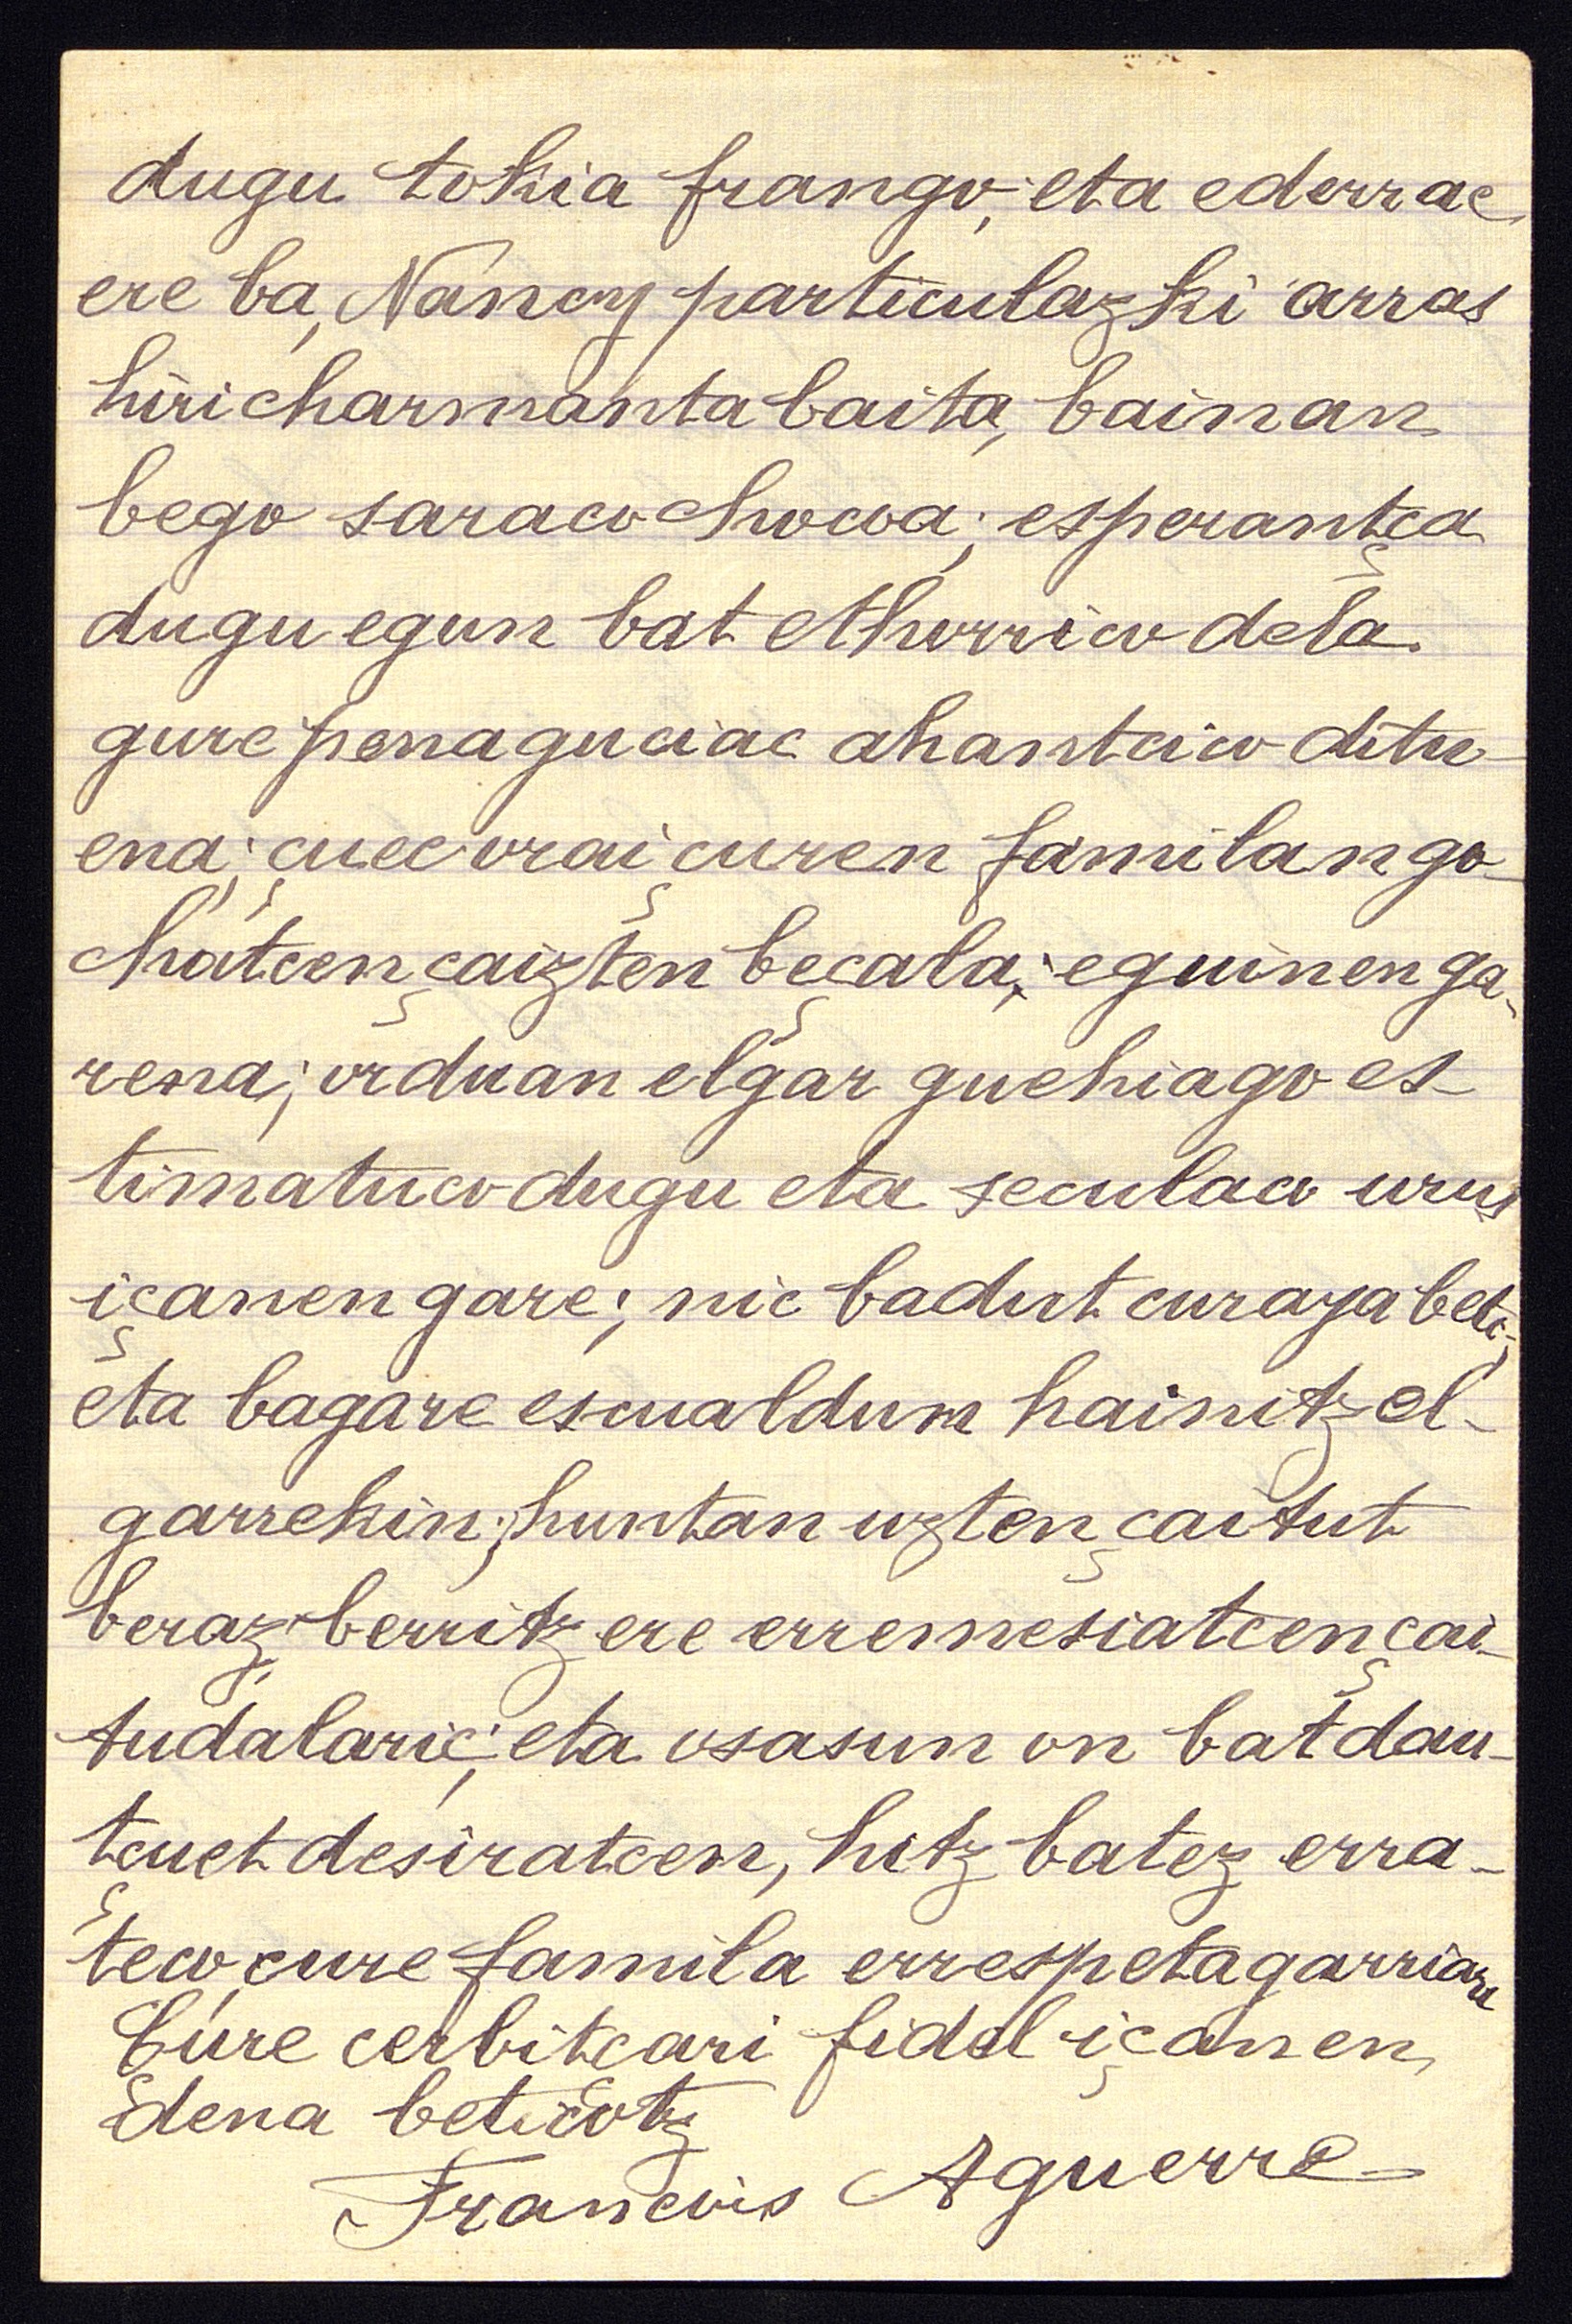 dugu tokia frango; eta ederrac
ere ba, Nancy particulazki arras
hiri charmanta baita, bainan
bego saraco chocoa; esperantça
dugu egun bat ethorrico dela
gure pena guciac ahantcico ditu-
ena; çuec orai çuren familan go-
chatcen çaizten beçala; eguinen ga-
rena; orduan elgar guehiago es-
timatuco dugu eta seculaco urus
içanen gare; nic badut curaya beti;
eta bagare escualdum hainitz el-
garrekin; huntan uzten çaitut
beraz berritz ere erremesiatcen çai-
tudalaric; eta osasun on bat dau-
tçuet desiratcen, hitz batez erra-
teco, çure famila errespetagarriare
Çure cerbitçari fidel içanen
dena beticotz
Francois Aguerre